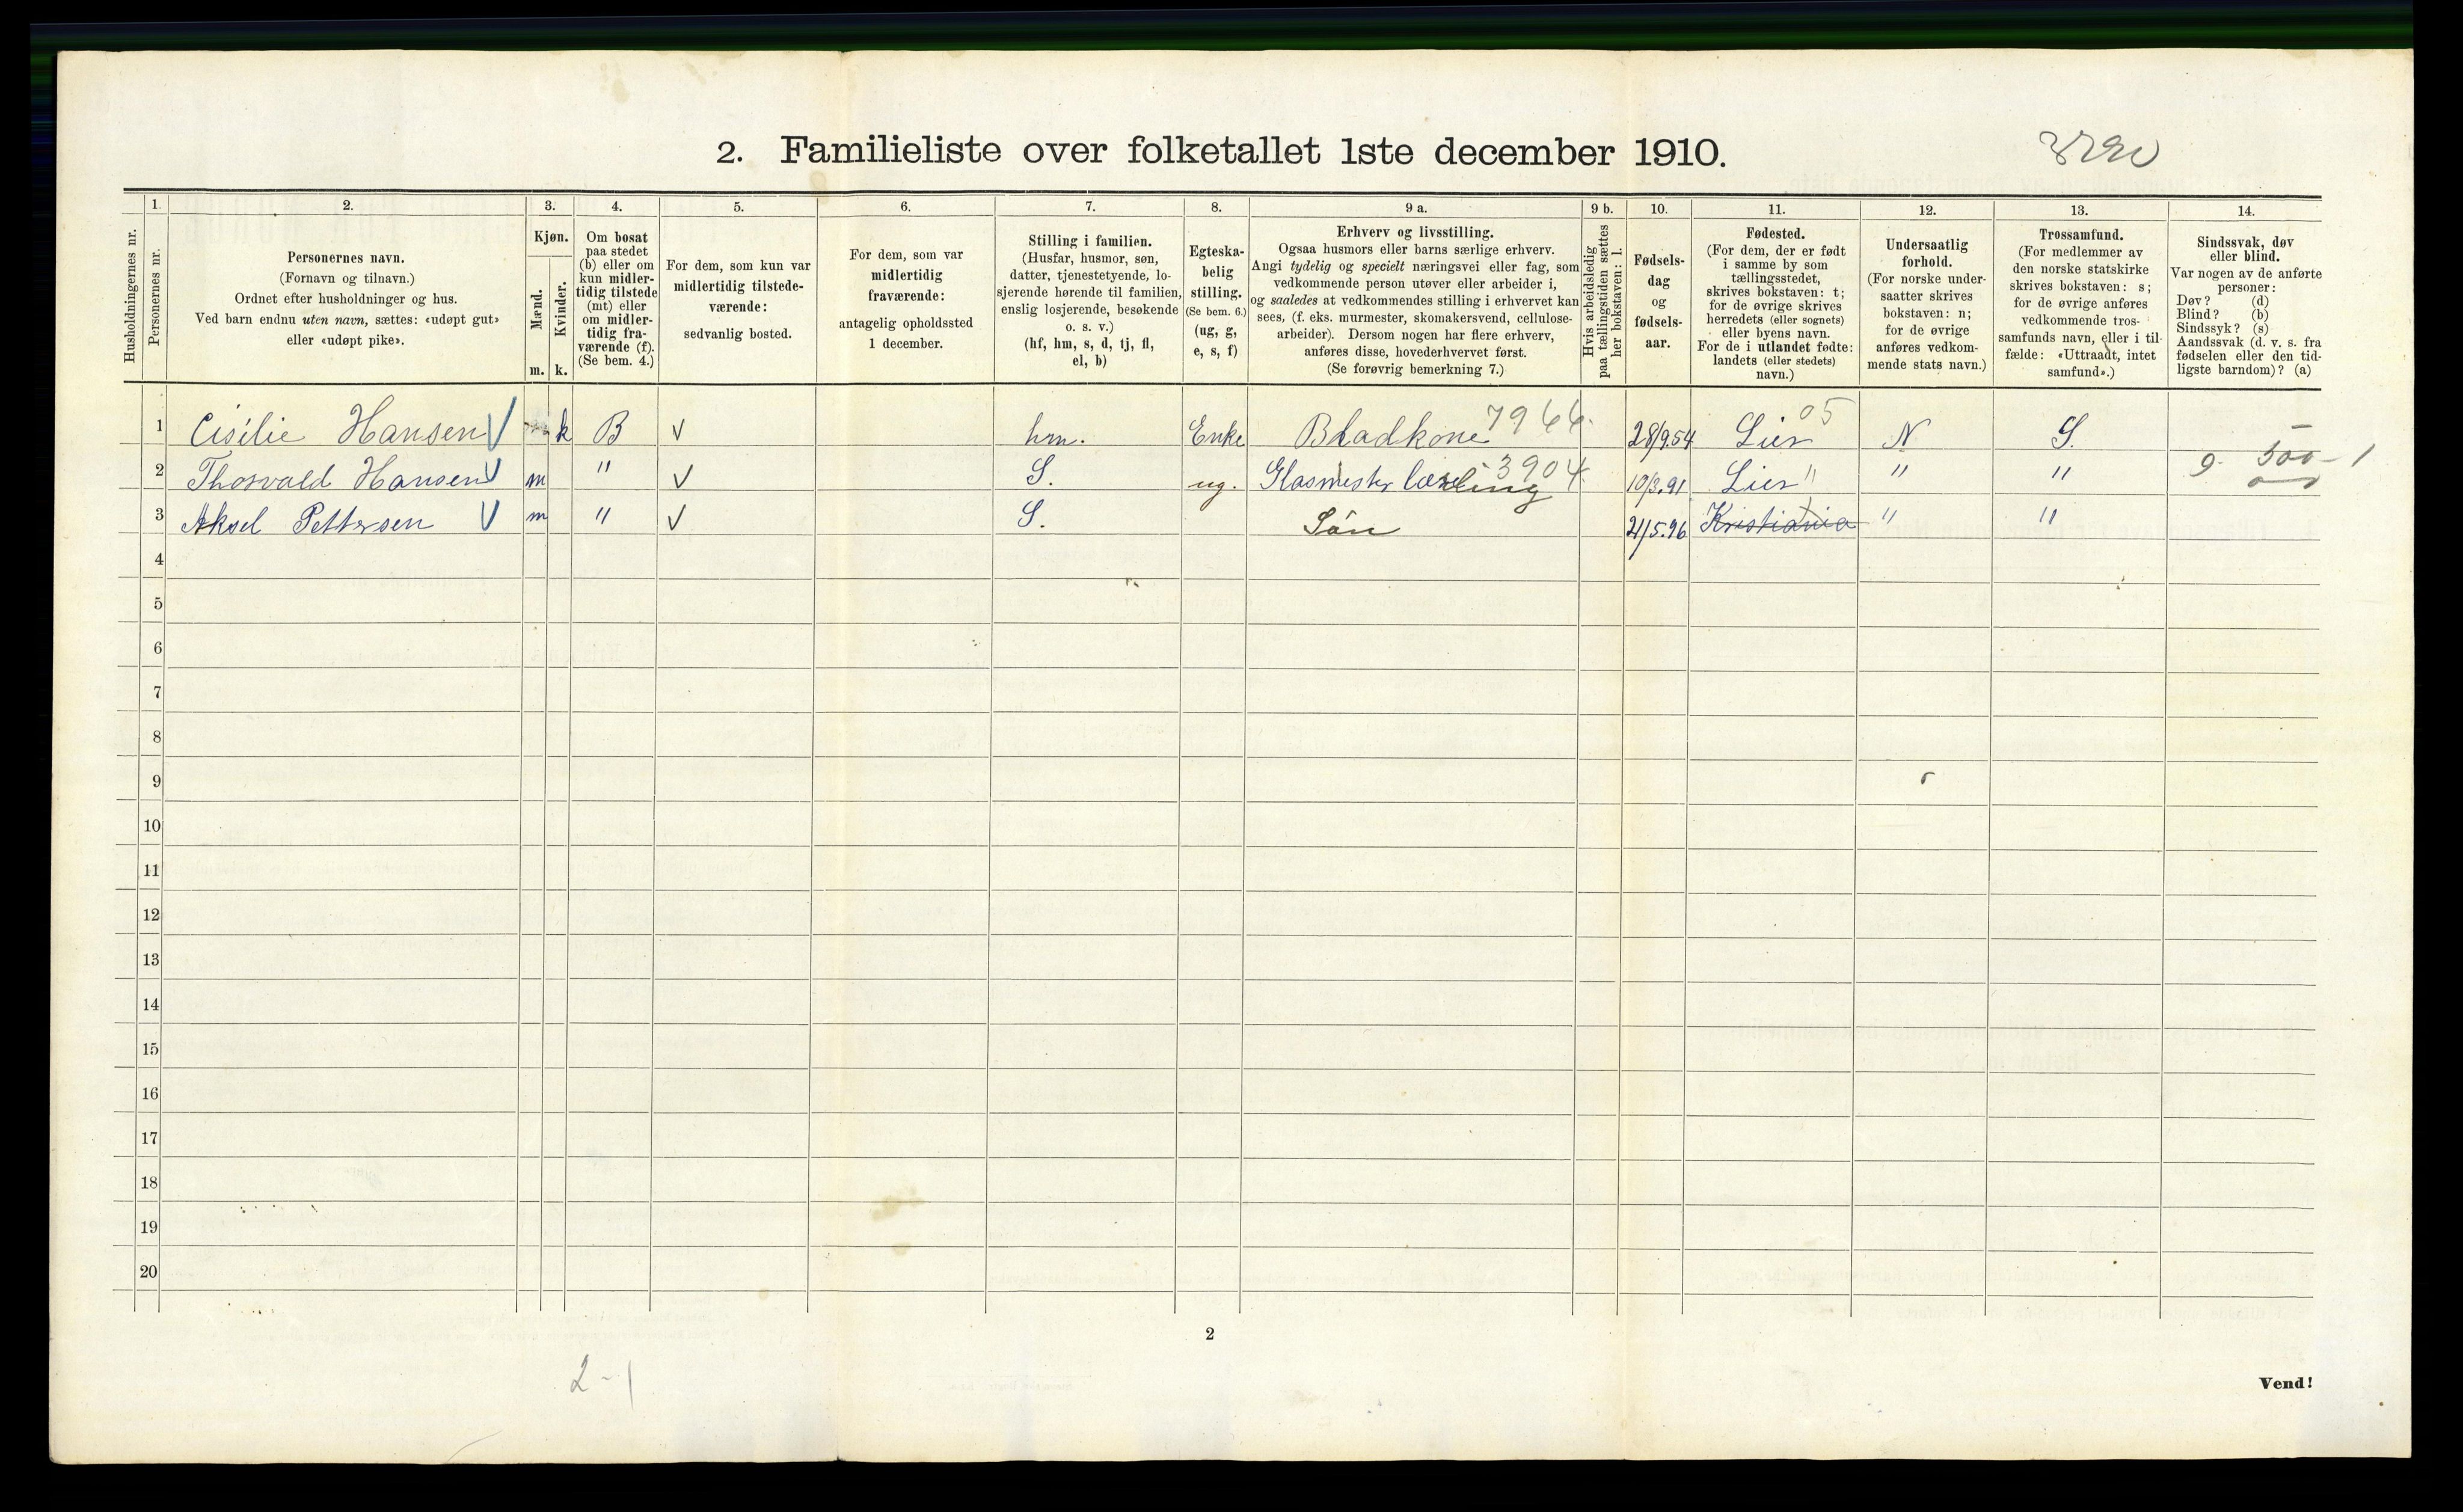 2. Familieliste over folketallet 1ste december 1910.
Husholdningernes nr.
1.
Personernes nr.
2.
Personernes navn.
(Fornavn og tilnavn.)
Ordnet efter husholdninger og hus.
Ved barn endnu uten navn, sættes: «udøpt gut»
eller «udøpt pike».
3.
Kjøn.
Mænd.
Kvinder.
m. k.
4.
Om bosat
paa stedet
(b) eller om
kun midler-
tidig tilstede
(mt) eller
om midler-
tidig fra-
værende (f).
(Se bem. 4.)
5.
For dem, som kun var
midlertidig tilstede-
værende:
sedvanlig bosted.
6.
For dem, som var
midlertidig
fraværende:
antagelig opholdssted
1 december.
7.
Stilling i familien.
(Husfar, husmor, søn,
datter, tjenestetyende, lo-
sjerende hørende til familien,
enslig losjerende, besøkende
o. s. v.)
(hf, hm, s, d, tj, fl,
el, b)
8.
Egteska-
belig
stilling.
(Se bem. 6.)
(ug, g,
e, s, f)
9 a.
Erhverv og livsstilling.
Ogsaa husmors eller barns særlige erhverv.
Angi tydelig og specielt næringsvei eller fag, som
vedkommende person utøver eller arbeider i,
og saaledes at vedkommendes stilling i erhvervet kan
sees, (f. eks. murmester, skomakersvend, cellulose-
arbeider). Dersom nogen har flere erhverv,
anføres disse, hovederhvervet først.
(Se forøvrig bemerkning 7.)
9 b.
Hvis arbeidsledig
paa tællingstiden sættes
her bokstaven: l.
10.
Fødsels-
dag
og
fødsels-
aar.
11.
Fødested.
(For dem, der er født
i samme by som
tællingsstedet,
skrives bokstaven: t;
for de øvrige skrives
herredets (eller sognets)
eller byens navn.
For de i utlandet fødte:
landets (eller stedets)
navn.)
12.
Undersaatlig
forhold.
(For norske under-
saatter skrives
bokstaven: n;
for de øvrige
anføres vedkom-
mende stats navn.)
13.
Trossamfund.
(For medlemmer av
den norske statskirke
skrives bokstaven: s;
for de øvrige anføres
vedkommende tros-
samfunds navn, eller i til-
fælde: «Uttraadt, intet
samfund».)
14.
Sindssvak, døv
eller blind.
Var nogen av de anførte
personer:
Døv? (d)
Blind? (b)
Sindssyk? (s)
Aandssvak (d. v. s. fra
fødselen eller den tid-
ligste barndom)? (a)
1 Cisilie Hansen V k B V hm. Enke Bladkone 7966. 28/9.54 Lier 05 N S. –
2 Thorvald Hansen V m " V S. ug. Glasmester lærling 3904. 10/3.91 Lier " " " 9. 500 – 1
3 Aksel Pettersen V m " V S. Sön 21/5.96 Kristiania " "
4
5
6
7
8
9
10
11
12
13
14
15
16
17
18
19
20
2
2-1
Vend!